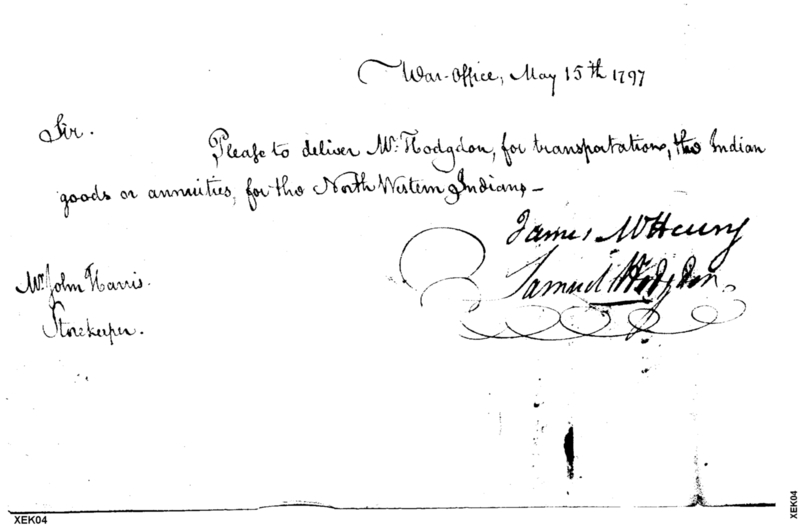 War-Office, May 15th 1797
Sir.
Please to deliver Mr. Hodgdon, for transportation, the Indian
goods or annuities, for the North Western Indians,-
James McHenry
Samuel Hodgdon.
Mr. John Harris.
Storekeeper.
XEK04
XEK04